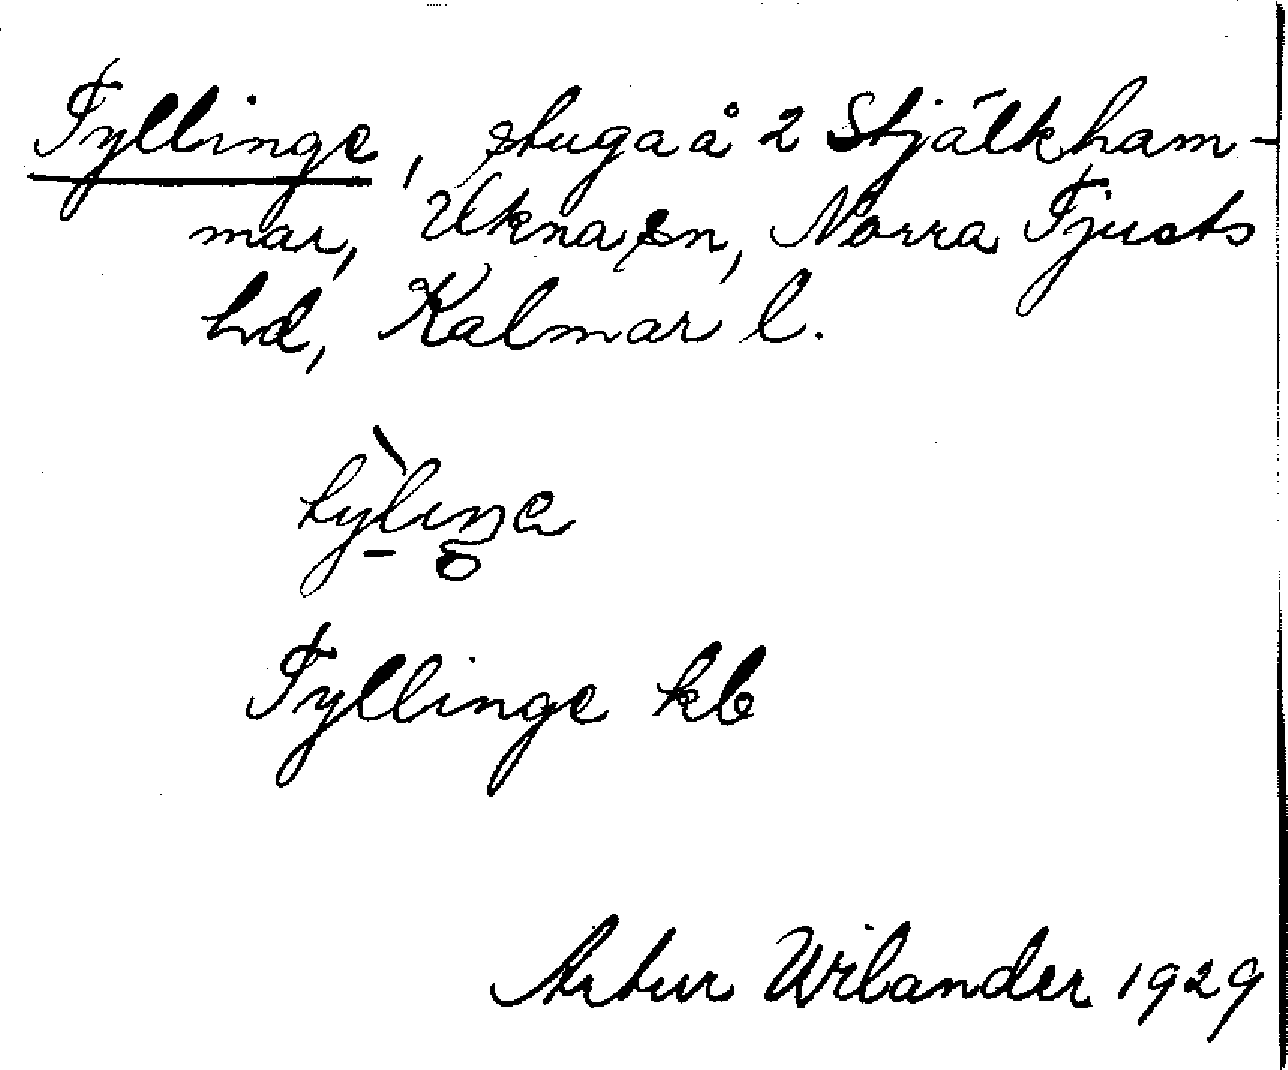 Tyllinge, stuga å 2 Stjälkham-
mar, Ukna sn, Norra Tjusts
hd, Kalmar l.
Tyllinge kb
Artur Wilander 1929